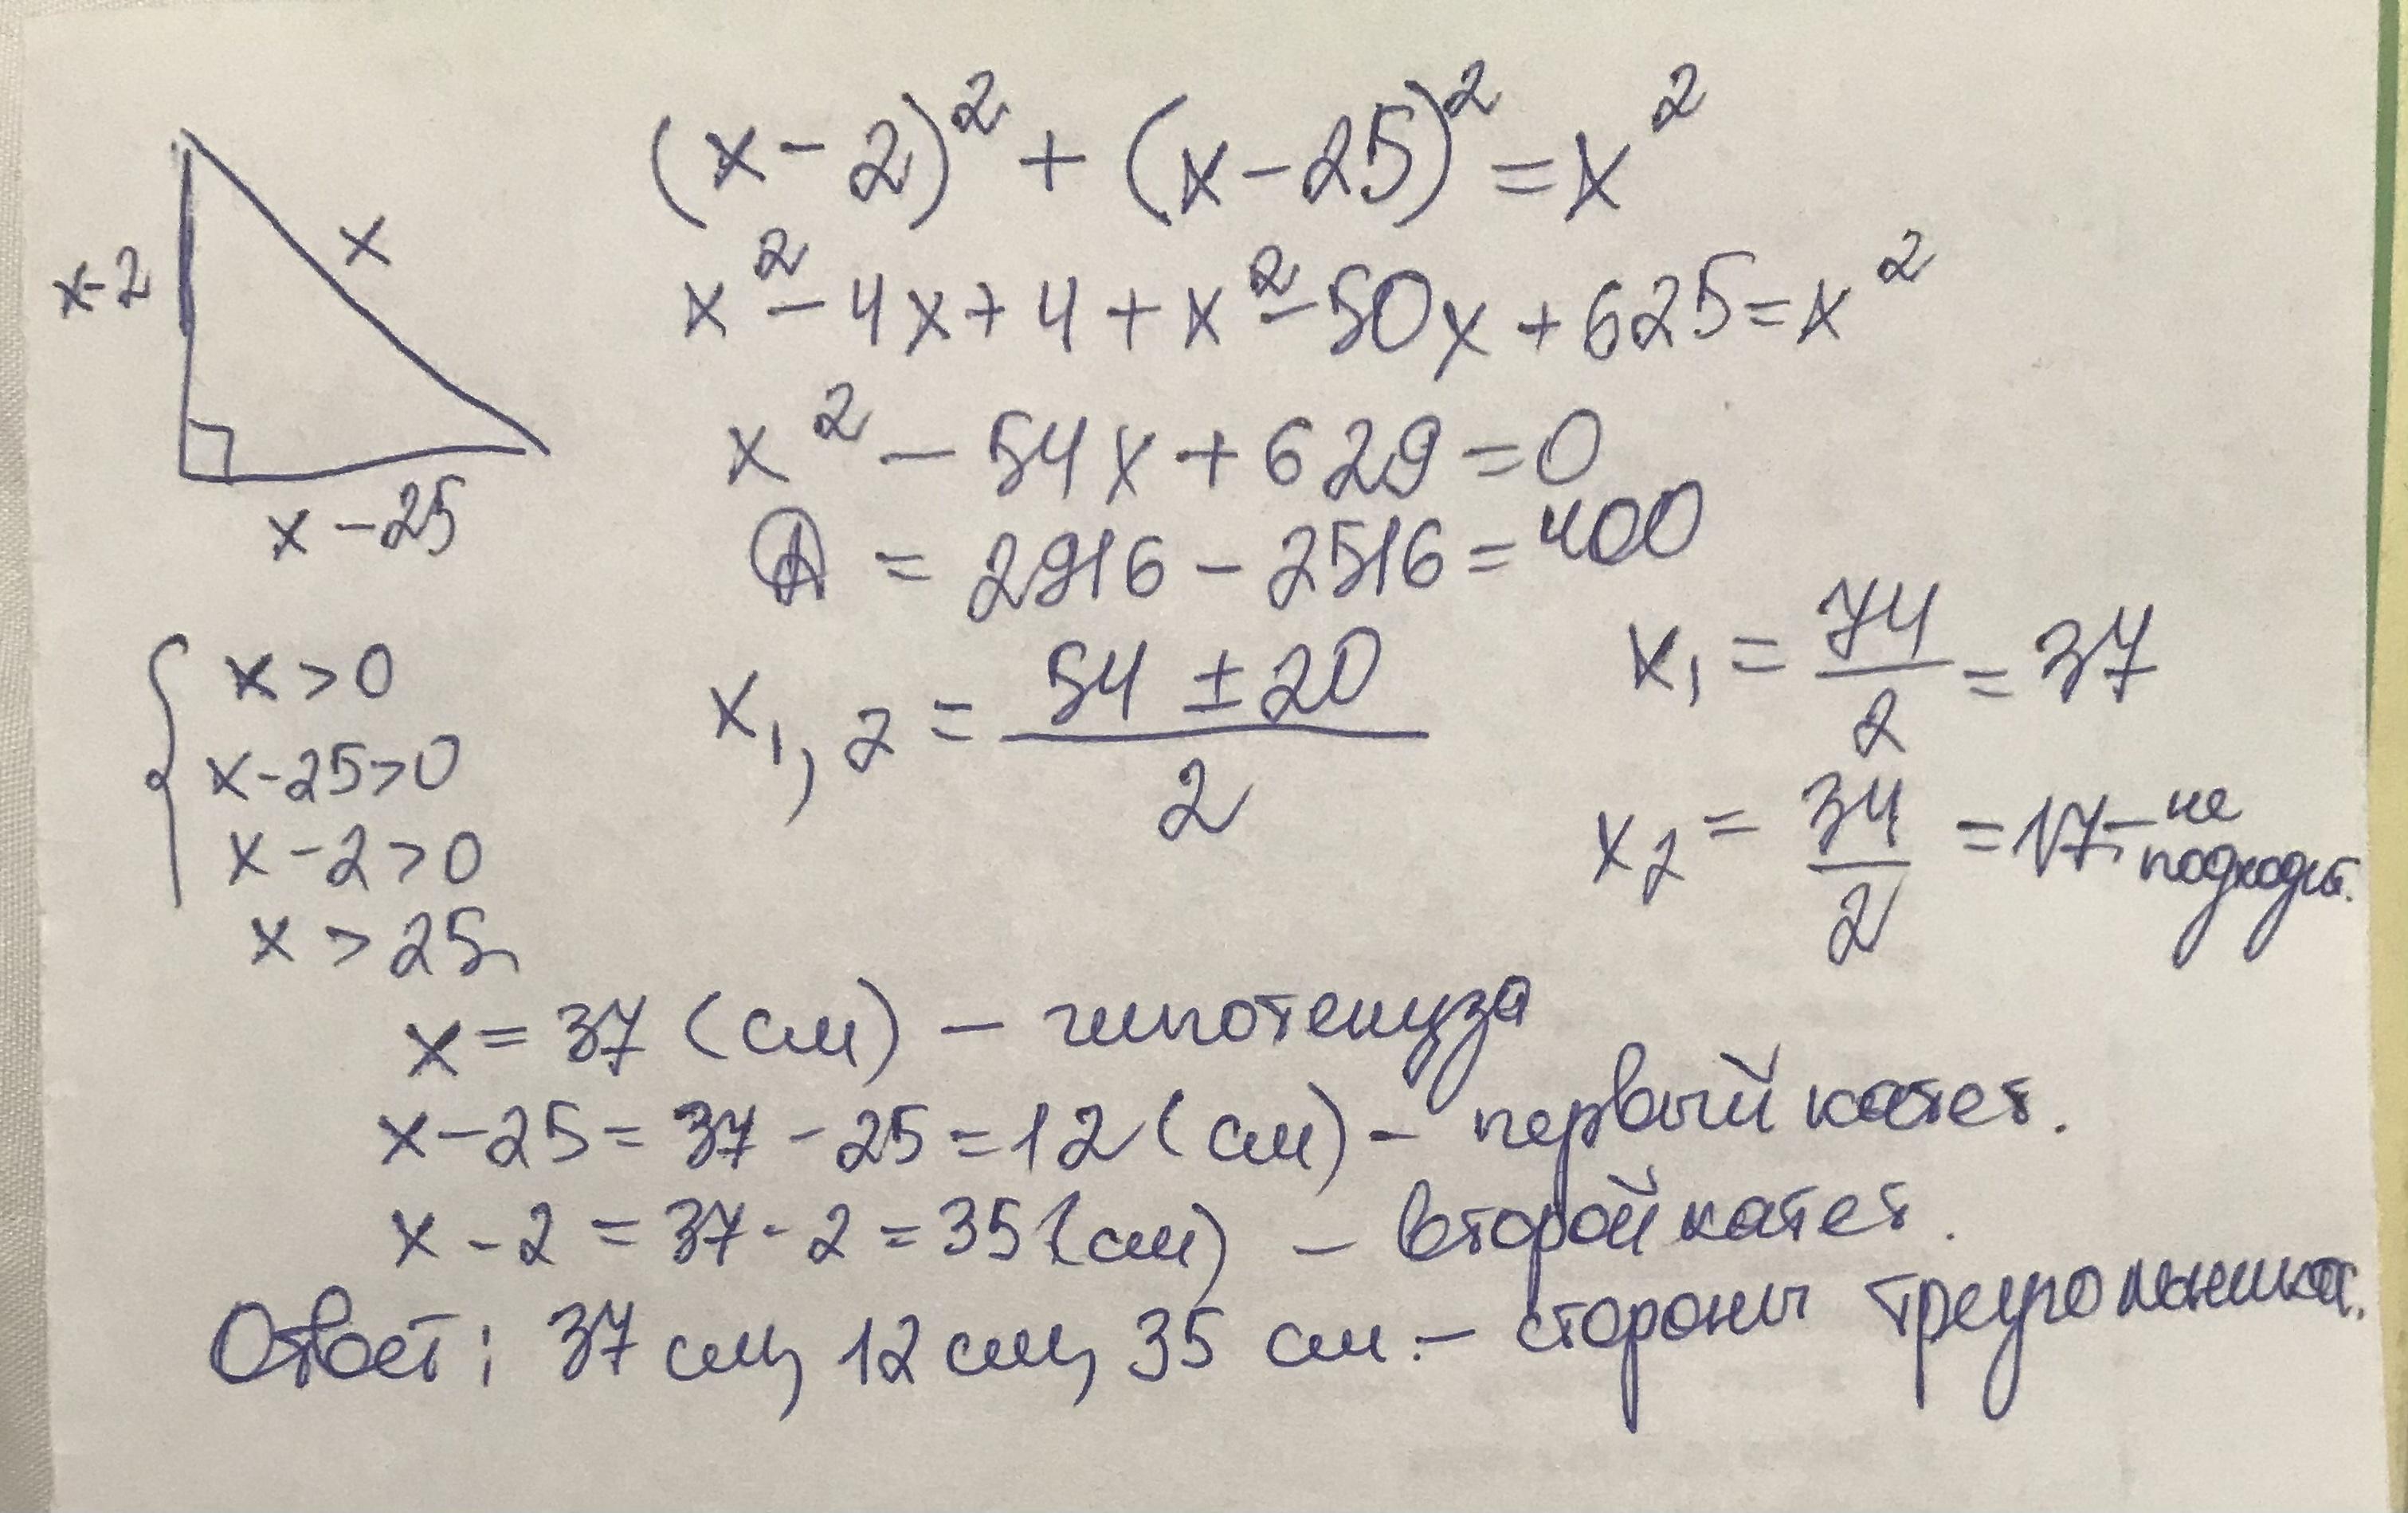 x-2
x
x-25
(x-2)² + (x-25)² = x²
x² - 4x + 4 + x² - 50x + 625 = x²
x² - 54x + 629 = 0
Д = 2916 - 2516 = 400
x₁,₂ = (54 ± 20)/2
x₁ = 74/2 = 37
x₂ = 34/2 = 17 - не подходит.
{ x > 0
x - 25 > 0
x - 2 > 0
x > 25
x = 37 (см) - гипотенуза
x - 25 = 37 - 25 = 12 (см) - первый катет.
x - 2 = 37 - 2 = 35 (см) - второй катет.
Ответ: 37 см, 12 см, 35 см. - стороны треугольника.